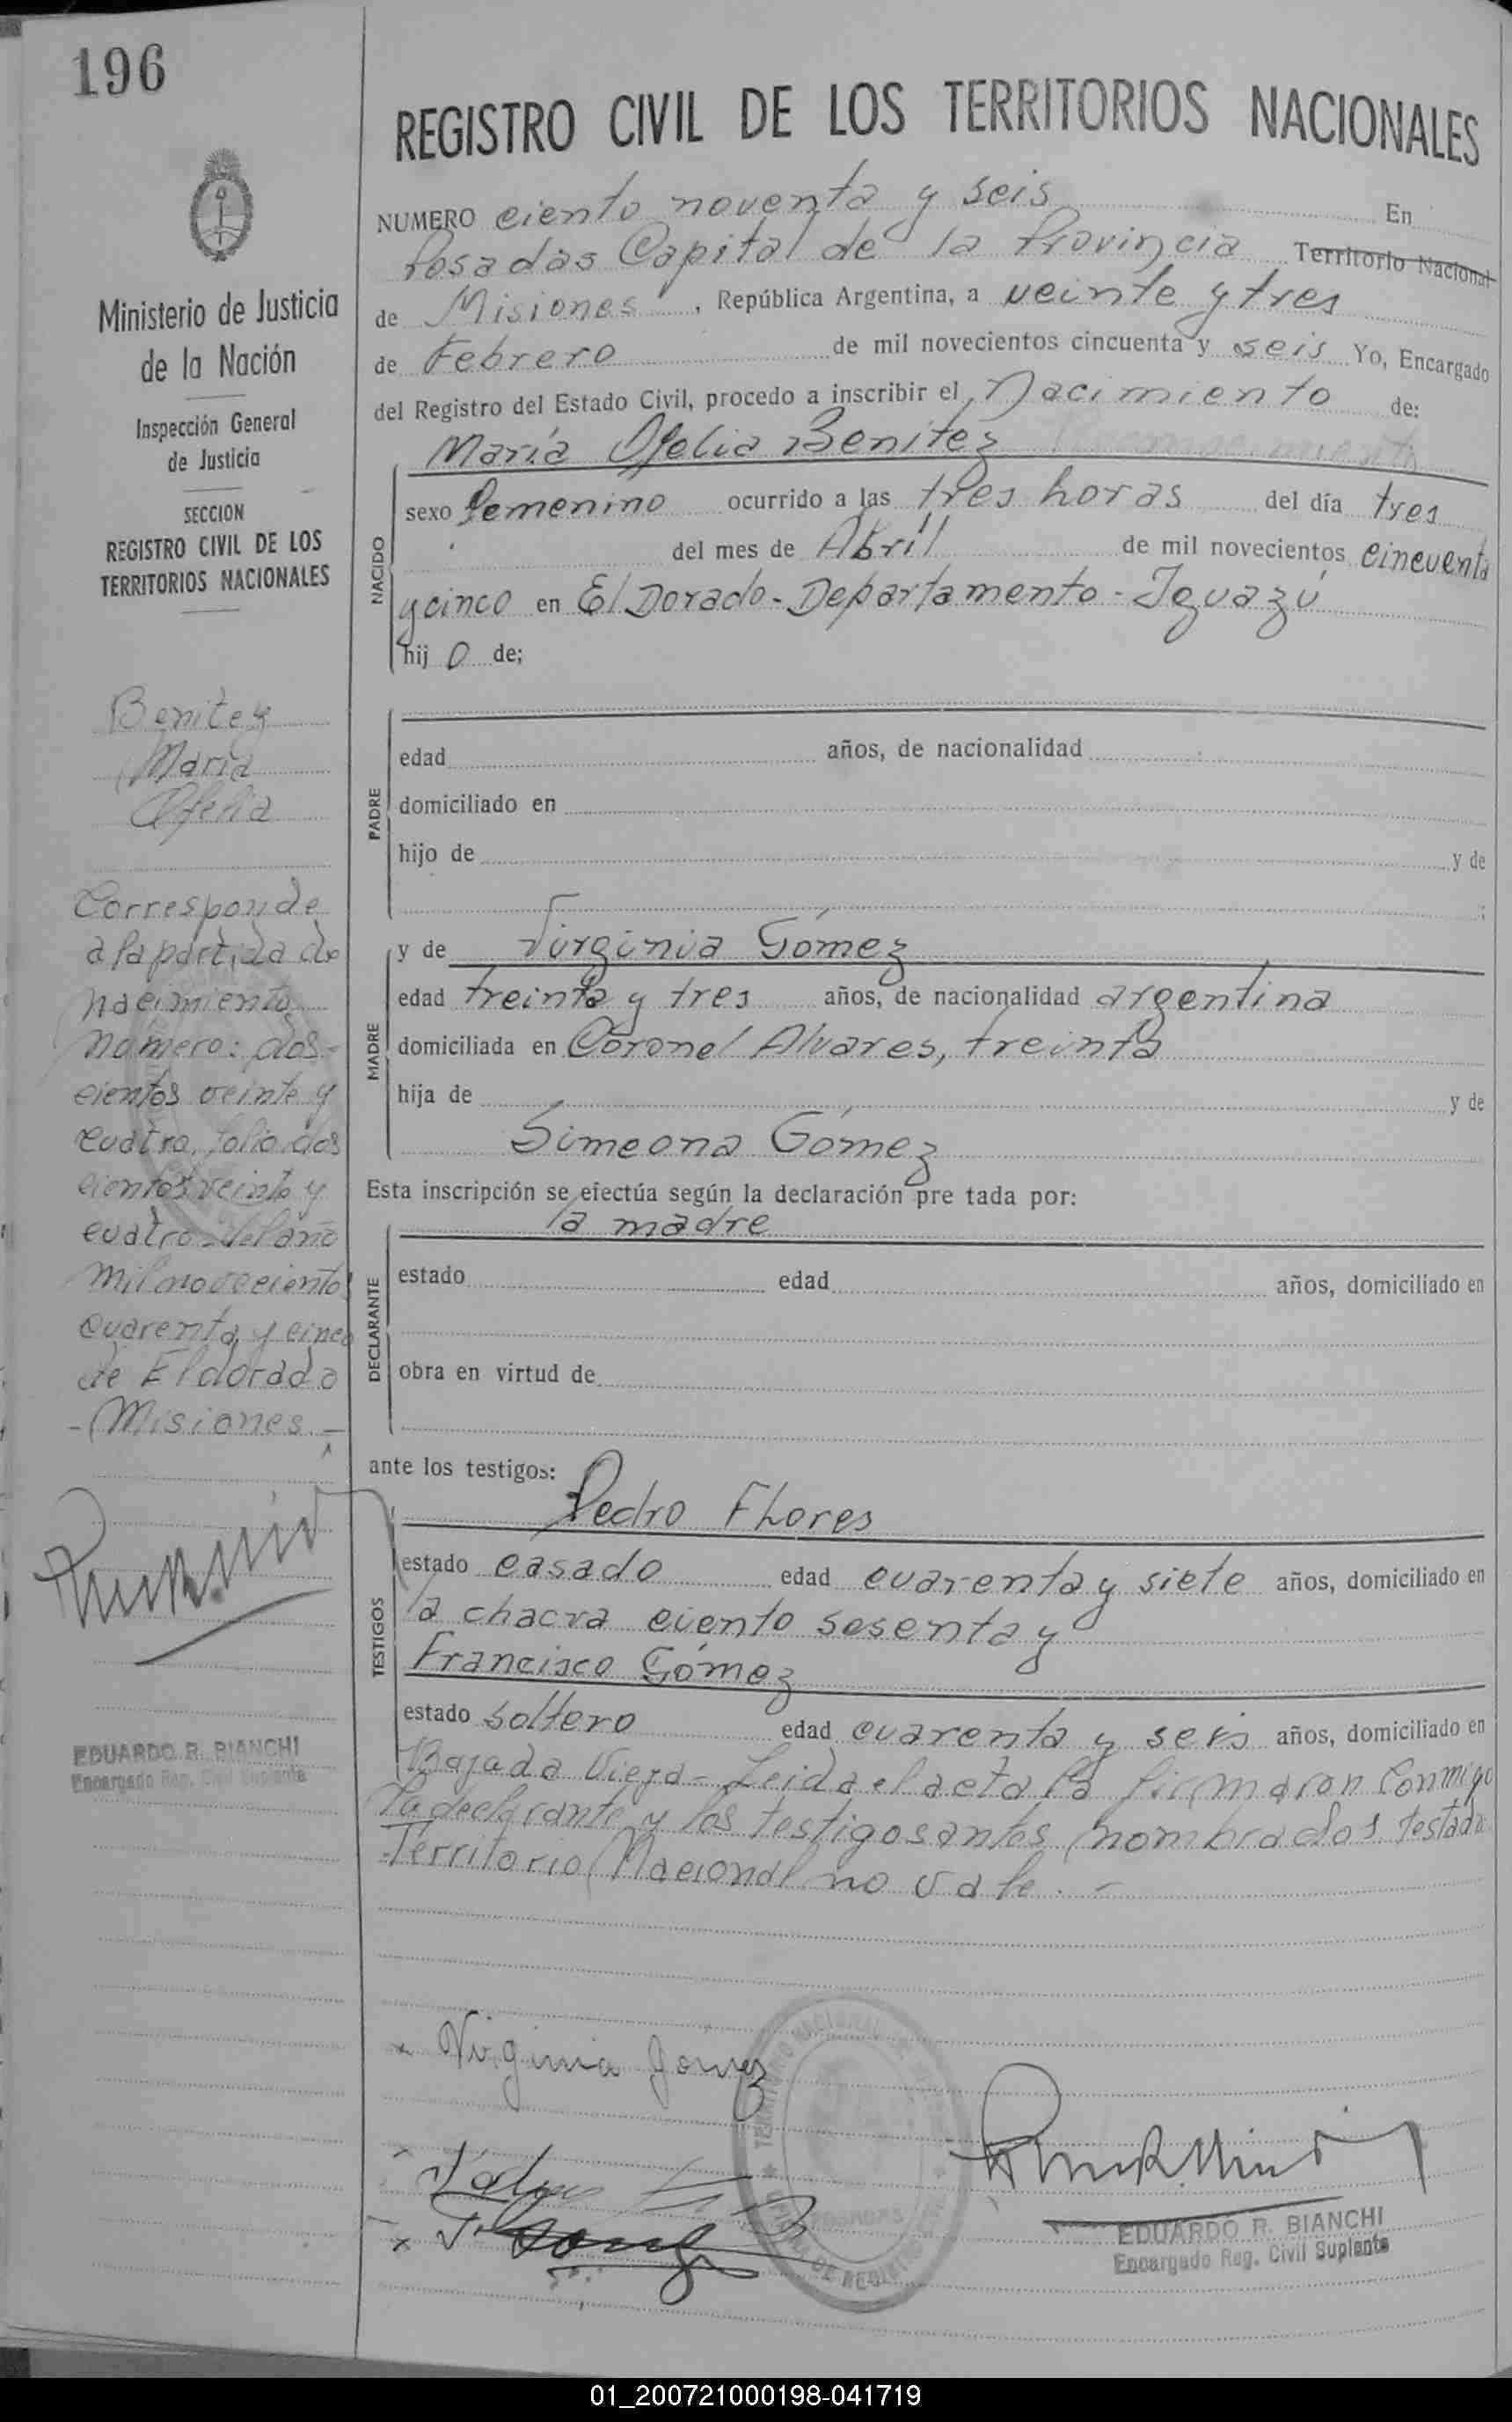 196
REGISTRO CIVIL DE LOS TERRITORIOS NACIONALES
Ministerio de Justicia
de la Nación
Inspección General
de Justicia
SECCION
REGISTRO CIVIL DE LOS
TERRITORIOS NACIONALES
Benitez
Maria
Ofelia
Corresponde
a la partida de
nacimiento
número: dos-
cientos veinte y
cuatro, folio dos
cientos veinte y
cuatro del año
mil novecientos
cuarenta y cinco
de Eldorado
- Misiones -
EDUARDO R. BIANCHI
Encargado Reg. Civil Suplente
NUMERO ciento noventa y seis En
Posadas Capital de la Provincia Territorio Nacional
de Misiones , República Argentina, a veinte y tres
de Febrero de mil novecientos cincuenta y seis Yo, Encargado
del Registro del Estado Civil, procedo a inscribir el Nacimiento de:
María Ofelia Benitez
NACIDO
sexo femenino ocurrido a las tres horas del día tres
del mes de Abril de mil novecientos cincuenta
y cinco en El Dorado - Departamento - Iguazú
hij o de;
PADRE
edad años, de nacionalidad
domiciliado en
hijo de y de
MADRE
y de Virginia Gómez
edad treinta y tres años, de nacionalidad argentina
domiciliada en Coronel Alvares, treinta
hija de y de
Simeona Gómez
Esta inscripción se efectúa según la declaración pre tada por:
la madre
DECLARANTE
estado edad años, domiciliado en
obra en virtud de
ante los testigos:
Pedro Flores
TESTIGOS
estado casado edad cuarenta y siete años, domiciliado en
la chacra ciento sesenta y
Francisco Gómez
estado soltero edad cuarenta y seis años, domiciliado en
Bajada Vieja - Leida el acta la firmaron conmigo
la declarante y los testigos antes nombrados testado
Territorio Nacional no vale. -
x Virginia Gomez
EDUARDO R. BIANCHI
Encargado Reg. Civil Suplente
01_200721000198-041719